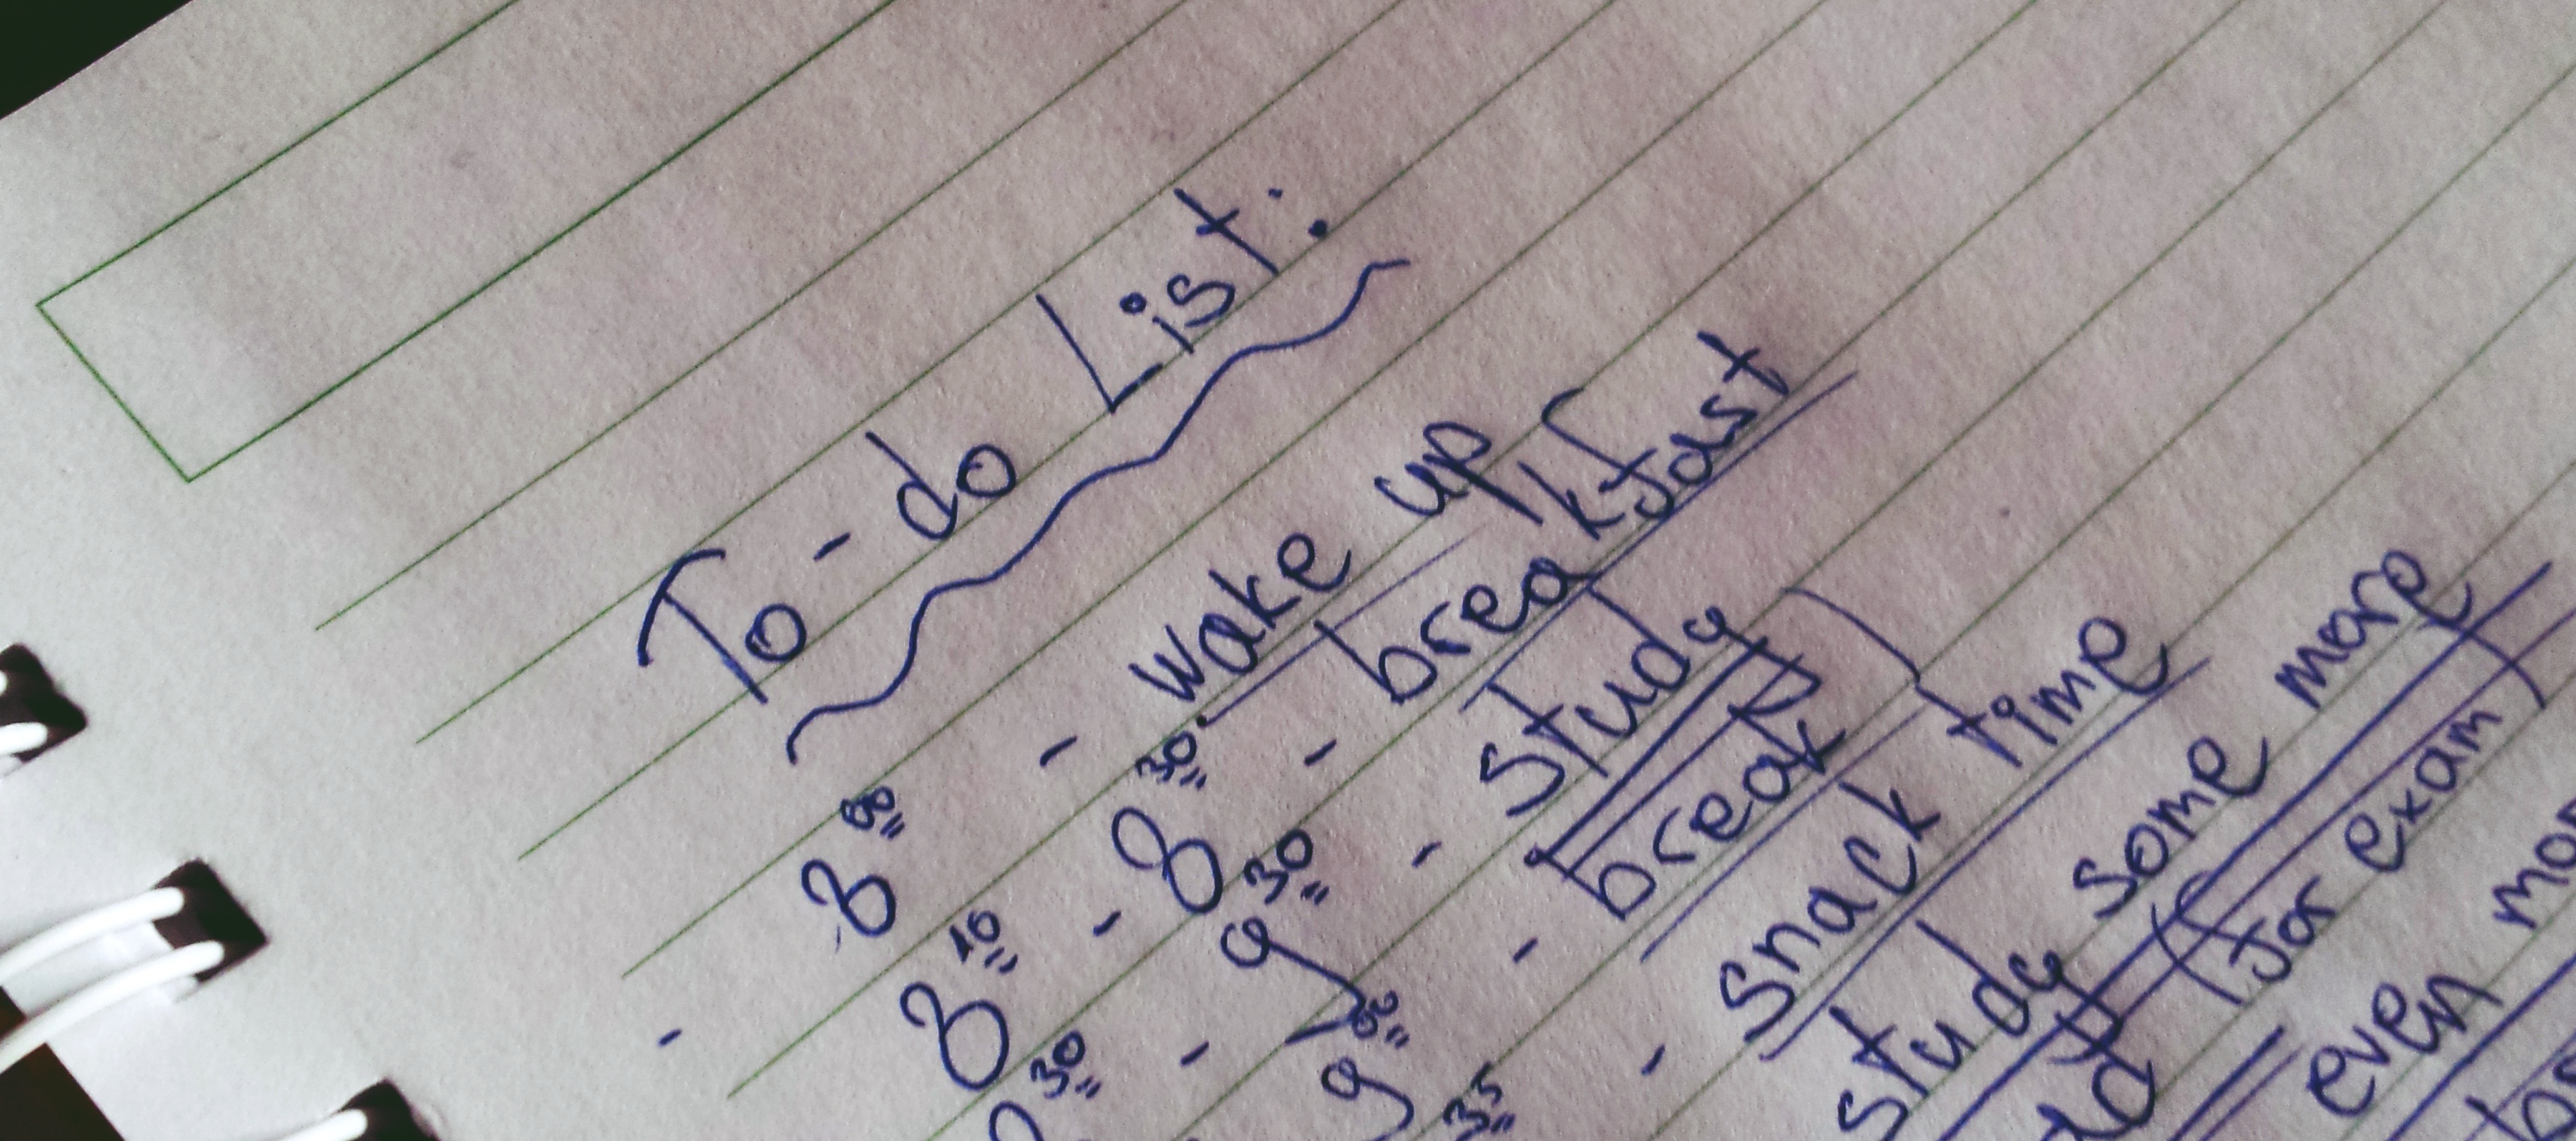 To-do List:
8 00 - wake up
- 8 10 - 8 30 - breakfast
8 30 - 9 30 - study
break
9 35 - snack time
study some more
(for exam)
even